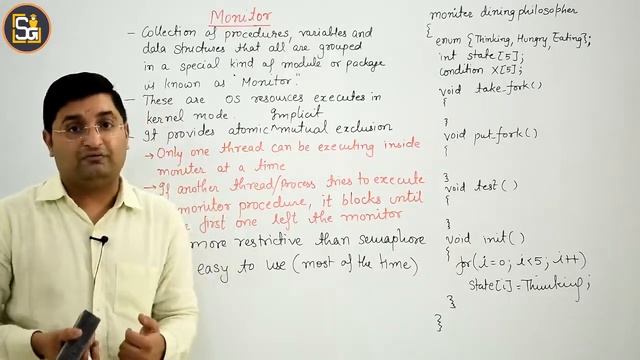 SG
Monitor
- Collection of procedures, variables and
data structures that all are grouped
in a special kind of module or package
is known as "Monitor".
- These are OS resources executes in
kernel mode. Implicit
It provides atomic ^ mutual exclusion
→ Only one thread can be executing inside
moniter at a time
→ If another thread/process tries to execute
monitor procedure, it blocks until
first one left the monitor
more restrictive than semaphore
easy to use (most of the time)
moniter diningphilosopher
{
enum {Thinking, Hungry, Eating};
int state[5];
condition X[5];
void take_fork()
{
}
void put_fork()
{
}
void test()
{
}
void init()
{
for(i=0; i<5, i++)
state[i]=Thinking;
}
}